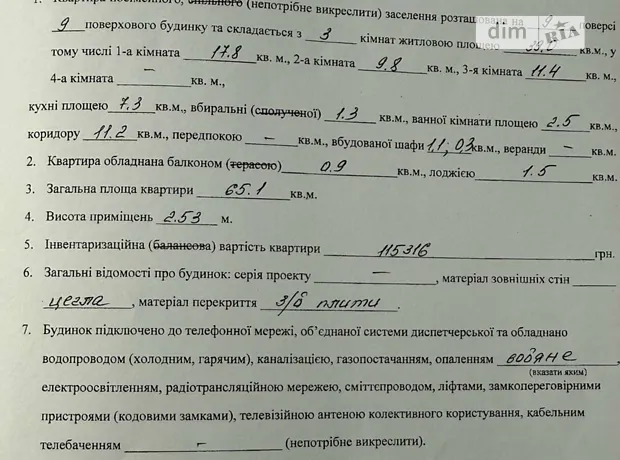 1. Квартира посімейного, спільного (непотрібне викреслити) заселення розташована на 9 поверсі
9 поверхового будинку та складається з 3 кімнат житловою площею 39,0 кв.м., у
тому числі 1-а кімната 17.8 кв. м., 2-а кімната 9.8 кв. м., 3-я кімната 11.4 кв. м.,
4-а кімната – кв. м.,
кухні площею 7,3 кв.м., вбиральні (сполученої) 1.3 кв.м., ванної кімнати площею 2.5 кв.м.,
коридору 11.2 кв.м., передпокою – кв.м., вбудованої шафи 1,1; 0,3 кв.м., веранди – кв.м.
2. Квартира обладнана балконом (терасою) 0.9 кв.м., лоджією 1.5 кв.м.
3. Загальна площа квартири 65.1 кв.м.
4. Висота приміщень 2.53 м.
5. Інвентаризаційна (балансова) вартість квартири 115316 грн.
6. Загальні відомості про будинок: серія проекту – , матеріал зовнішніх стін
цегла, матеріал перекриття з/б плити.
7. Будинок підключено до телефонної мережі, об’єднаної системи диспетчерської та обладнано
водопроводом (холодним, гарячим), каналізацією, газопостачанням, опаленням водяне,
(вказати яким)
електроосвітленням, радіотрансляційною мережею, сміттєпроводом, ліфтами, замкопереговірними
пристроями (кодовими замками), телевізійною антеною колективного користування, кабельним
телебаченням – (непотрібне викреслити).
dim RIA